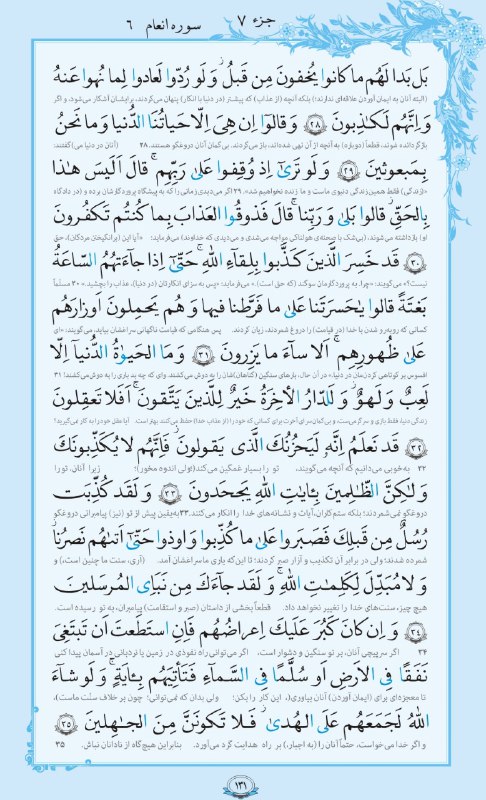 جزء ۷ سوره انعام ۶
بَل بَدا لَهُم ما كانوا يُخفونَ مِن قَبلُ ۖ وَ لَو رُدّوا لَعادوا لِما نُهوا عَنهُ
(البته آنان به ایمان آوردن علاقه‌ای ندارند؛) بلکه آنچه (از عذاب) که پیشتر (در دنیا با انکار) پنهان می‌کردند، برایشان آشکار می‌شود، و اگر
وَ اِنَّهُم لَكـٰذِبونَ ﴿٢٨﴾ وَ قالوٓا اِن هِىَ اِلّا حَياتُنَا الدُّنيا وَ ما نَحنُ
بازگردانده شوند، قطعاً (دوباره) به آنچه از آن نهی شده‌اند، باز می‌گردند. بی‌گمان آنان دروغگو هستند. ۲۸ (آنان در دنیا می‌) گفتند:
بِمَبعوثينَ ﴿٢٩﴾ وَ لَو تَرىٰٓ اِذ وُقِفوا عَلىٰ رَبِّهِم ۚ قالَ اَلَيسَ هـٰذا
«(زندگی) فقط همین زندگی دنیوی ماست و ما زنده نخواهیم شد». ۲۹ اگر می‌دیدی زمانی را که به پیشگاه پروردگارشان برده و (در دادگاه
بِالحَقِّ ۚ قالوا بَلىٰ وَ رَبِّنا ۚ قالَ فَذوقُوا العَذابَ بِما كُنتُم تَكفُرونَ
او) بازداشته می‌شوند، (بی‌شک با صحنه‌ی هولناکی مواجه می‌شدی و می‌دیدی که خداوند) می‌فرماید: «آیا این (برانگیختن مردگان)، حق
﴿٣٠﴾ قَد خَسِرَ الَّذينَ كَذَّبوا بِلِقاءِ اللهِ ۖ حَتّىٰٓ اِذا جاءَتهُمُ السّاعَةُ
نیست؟» می‌گویند: «چرا، به پروردگارمان سوگند (که حق است).» می‌فرماید: «پس به سزای انکارتان (در دنیا)، عذاب را بچشید.» ۳۰ مسلّماً
بَغتَةً قالوا يـٰحَسرَتَنا عَلىٰ ما فَرَّطنا فيها وَ هُم يَحمِلونَ اَوزارَهُم
کسانی که روبه‌رو شدن با خدا (در قیامت) را دروغ شمردند، زیان کردند. پس هنگامی که قیامت ناگهانی سراغشان بیاید، می‌گویند: «ای
عَلىٰ ظُهورِهِم ۚ اَلا ساءَ ما يَزِرونَ ﴿٣١﴾ وَ مَا الحَيوٰةُ الدُّنيآ اِلّا
افسوس بر کوتاهی کردن‌مان در دنیا» در آن حال، بارهای سنگین (گناهان)شان را به دوش می‌کشند. وای که چه بد باری را به دوش می‌کشند! ۳۱
لَعِبٌ وَ لَهوٌ ۖ وَ لَلدّارُ الأخِرَةُ خَيرٌ لِلَّذينَ يَتَّقونَ ۗ اَفَلا تَعقِلونَ
زندگی دنیا، فقط بازی و سرگرمی‌ست، و بی‌گمان سرای آخرت برای کسانی که خود را (از عذاب خدا) حفظ می‌کنند بهتر است. آیا عقل خود را به کار نمی‌گیرید؟
﴿٣٢﴾ قَد نَعلَمُ اِنَّهُ لَيَحزُنُكَ الَّذى يَقولونَ ۖ فَاِنَّهُم لا يُكَذِّبونَكَ
۳۲ به‌خوبی می‌دانیم که آنچه می‌گویند، تو را بسیار غمگین می‌کند (ولی اندوه مخور)؛ زیرا آنان، تو را
وَ لـٰكِنَّ الظّـٰلِمينَ بِـٔايـٰتِ اللهِ يَجحَدونَ ﴿٣٣﴾ وَ لَقَد كُذِّبَت
دروغگو نمی‌شمردند؛ بلکه ستم‌کاران، آیات و نشانه‌های خدا را انکار می‌کنند. ۳۳ به‌یقین پیش از تو (نیز) پیامبرانی دروغگو
رُسُلٌ مِن قَبلِكَ فَصَبَروا عَلىٰ ما كُذِّبوا وَ اوذوا حَتّىٰٓ اَتىٰهُم نَصرُنا ۚ
شمرده شدند؛ ولی در برابر آن تکذیب و آزار صبر کردند؛ تا این‌که یاری ما سراغشان آمد. (آری، سنت ما چنین است)، و
وَ لا مُبَدِّلَ لِكَلِمـٰتِ اللهِ ۚ وَ لَقَد جاءَكَ مِن نَبَإِى المُرسَلينَ
هیچ چیز، سنت‌های خدا را تغییر نخواهد داد. قطعاً بخشی از داستان (صبر و استقامت) پیامبران، به تو رسیده است.
﴿٣٤﴾ وَ اِن كانَ كَبُرَ عَلَيكَ اِعراضُهُم فَاِنِ استَطَعتَ اَن تَبتَغِىَ
۳۴ اگر سرپیچی آنان، بر تو سنگین و دشوار است، اگر می‌توانی راه نفوذی در زمین یا نردبانی در آسمان پیدا کنی
نَفَقًا فِى الاَرضِ اَو سُلَّمًا فِى السَّماءِ فَتَأتِيَهُم بِـٔايَةٍ ۚ وَ لَو شاءَ
تا معجزه‌ای برای (ایمان آوردن) آنان بیاوری(، این کار را بکن؛ ولی بدان که نمی‌توانی؛ چون بر خلاف سنّت ماست)،
اللهُ لَجَمَعَهُم عَلَى الهُدىٰ ۚ فَلا تَكونَنَّ مِنَ الجـٰهِلينَ ﴿٣٥﴾
و اگر خدا می‌خواست، حتماً آنان را (به اجبار،) بر راه هدایت گرد می‌آورد. بنابراین هیچ‌گاه از نادانان نباش. ۳۵
۱۳۱